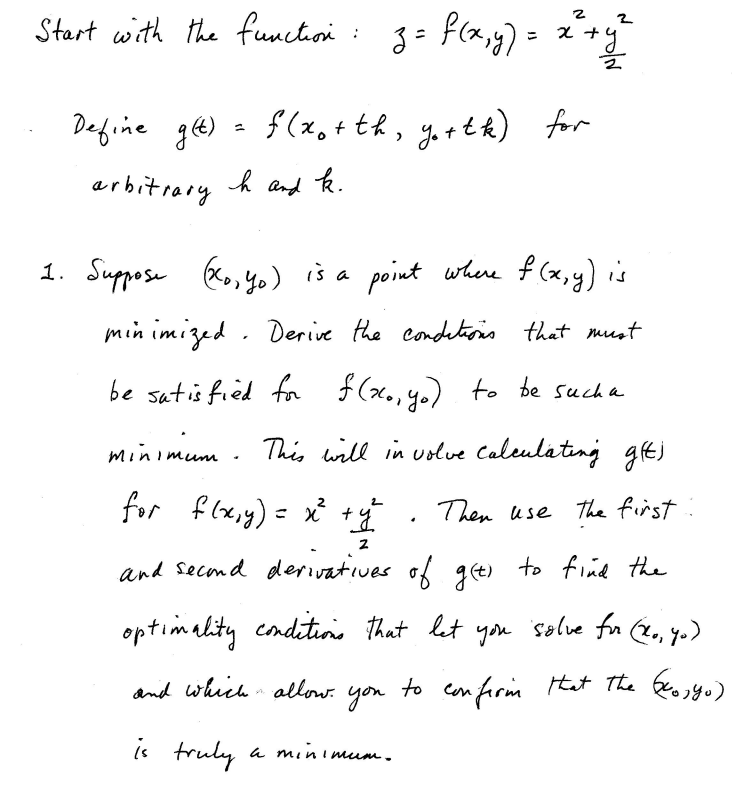 Start with the function : z = f(x,y) = x² + y²/2
Define g(t) = f(x₀ + th, y₀ + tk) for
arbitrary h and k.
1. Suppose (x₀, y₀) is a point where f(x,y) is
minimized. Derive the conditions that must
be satisfied for f(x₀, y₀) to be such a
minimum. This will involve calculating g(t)
for f(x,y) = x² + y²/2 . Then use the first
and second derivatives of g(t) to find the
optimality conditions that let you solve for (x₀, y₀)
and which allow you to confirm that the (x₀, y₀)
is truly a minimum.